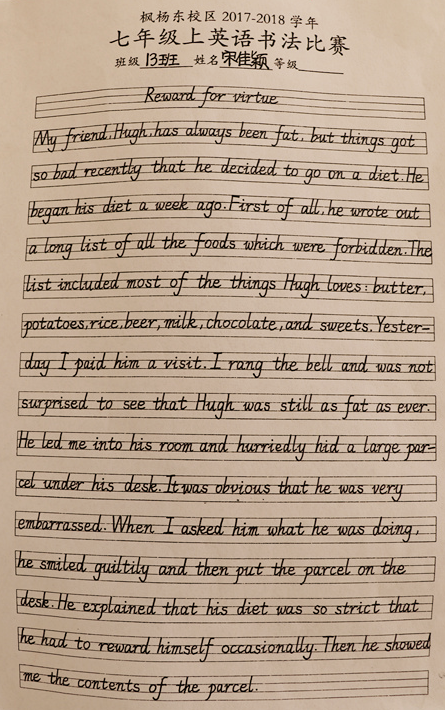 枫杨东校区 2017-2018 学年
七年级上英语书法比赛
班级 13班 姓名 宋佳颖 等级
Reward for virtue
My friend,Hugh,has always been fat, but things got
so bad recently that he decided to go on a diet.He
began his diet a week ago.First of all,he wrote out
a long list of all the foods which were forbidden.The
list included most of the things Hugh loves: butter,
potatoes,rice,beer,milk,chocolate,and sweets. Yester-
day I paid him a visit.I rang the bell and was not
surprised to see that Hugh was still as fat as ever.
He led me into his room and hurriedly hid a large par-
cel under his desk.It was obvious that he was very
embarrassed.When I asked him what he was doing,
he smiled guiltily and then put the parcel on the
desk.He explained that his diet was so strict that
he had to reward himself occasionally.Then he showed
me the contents of the parcel.